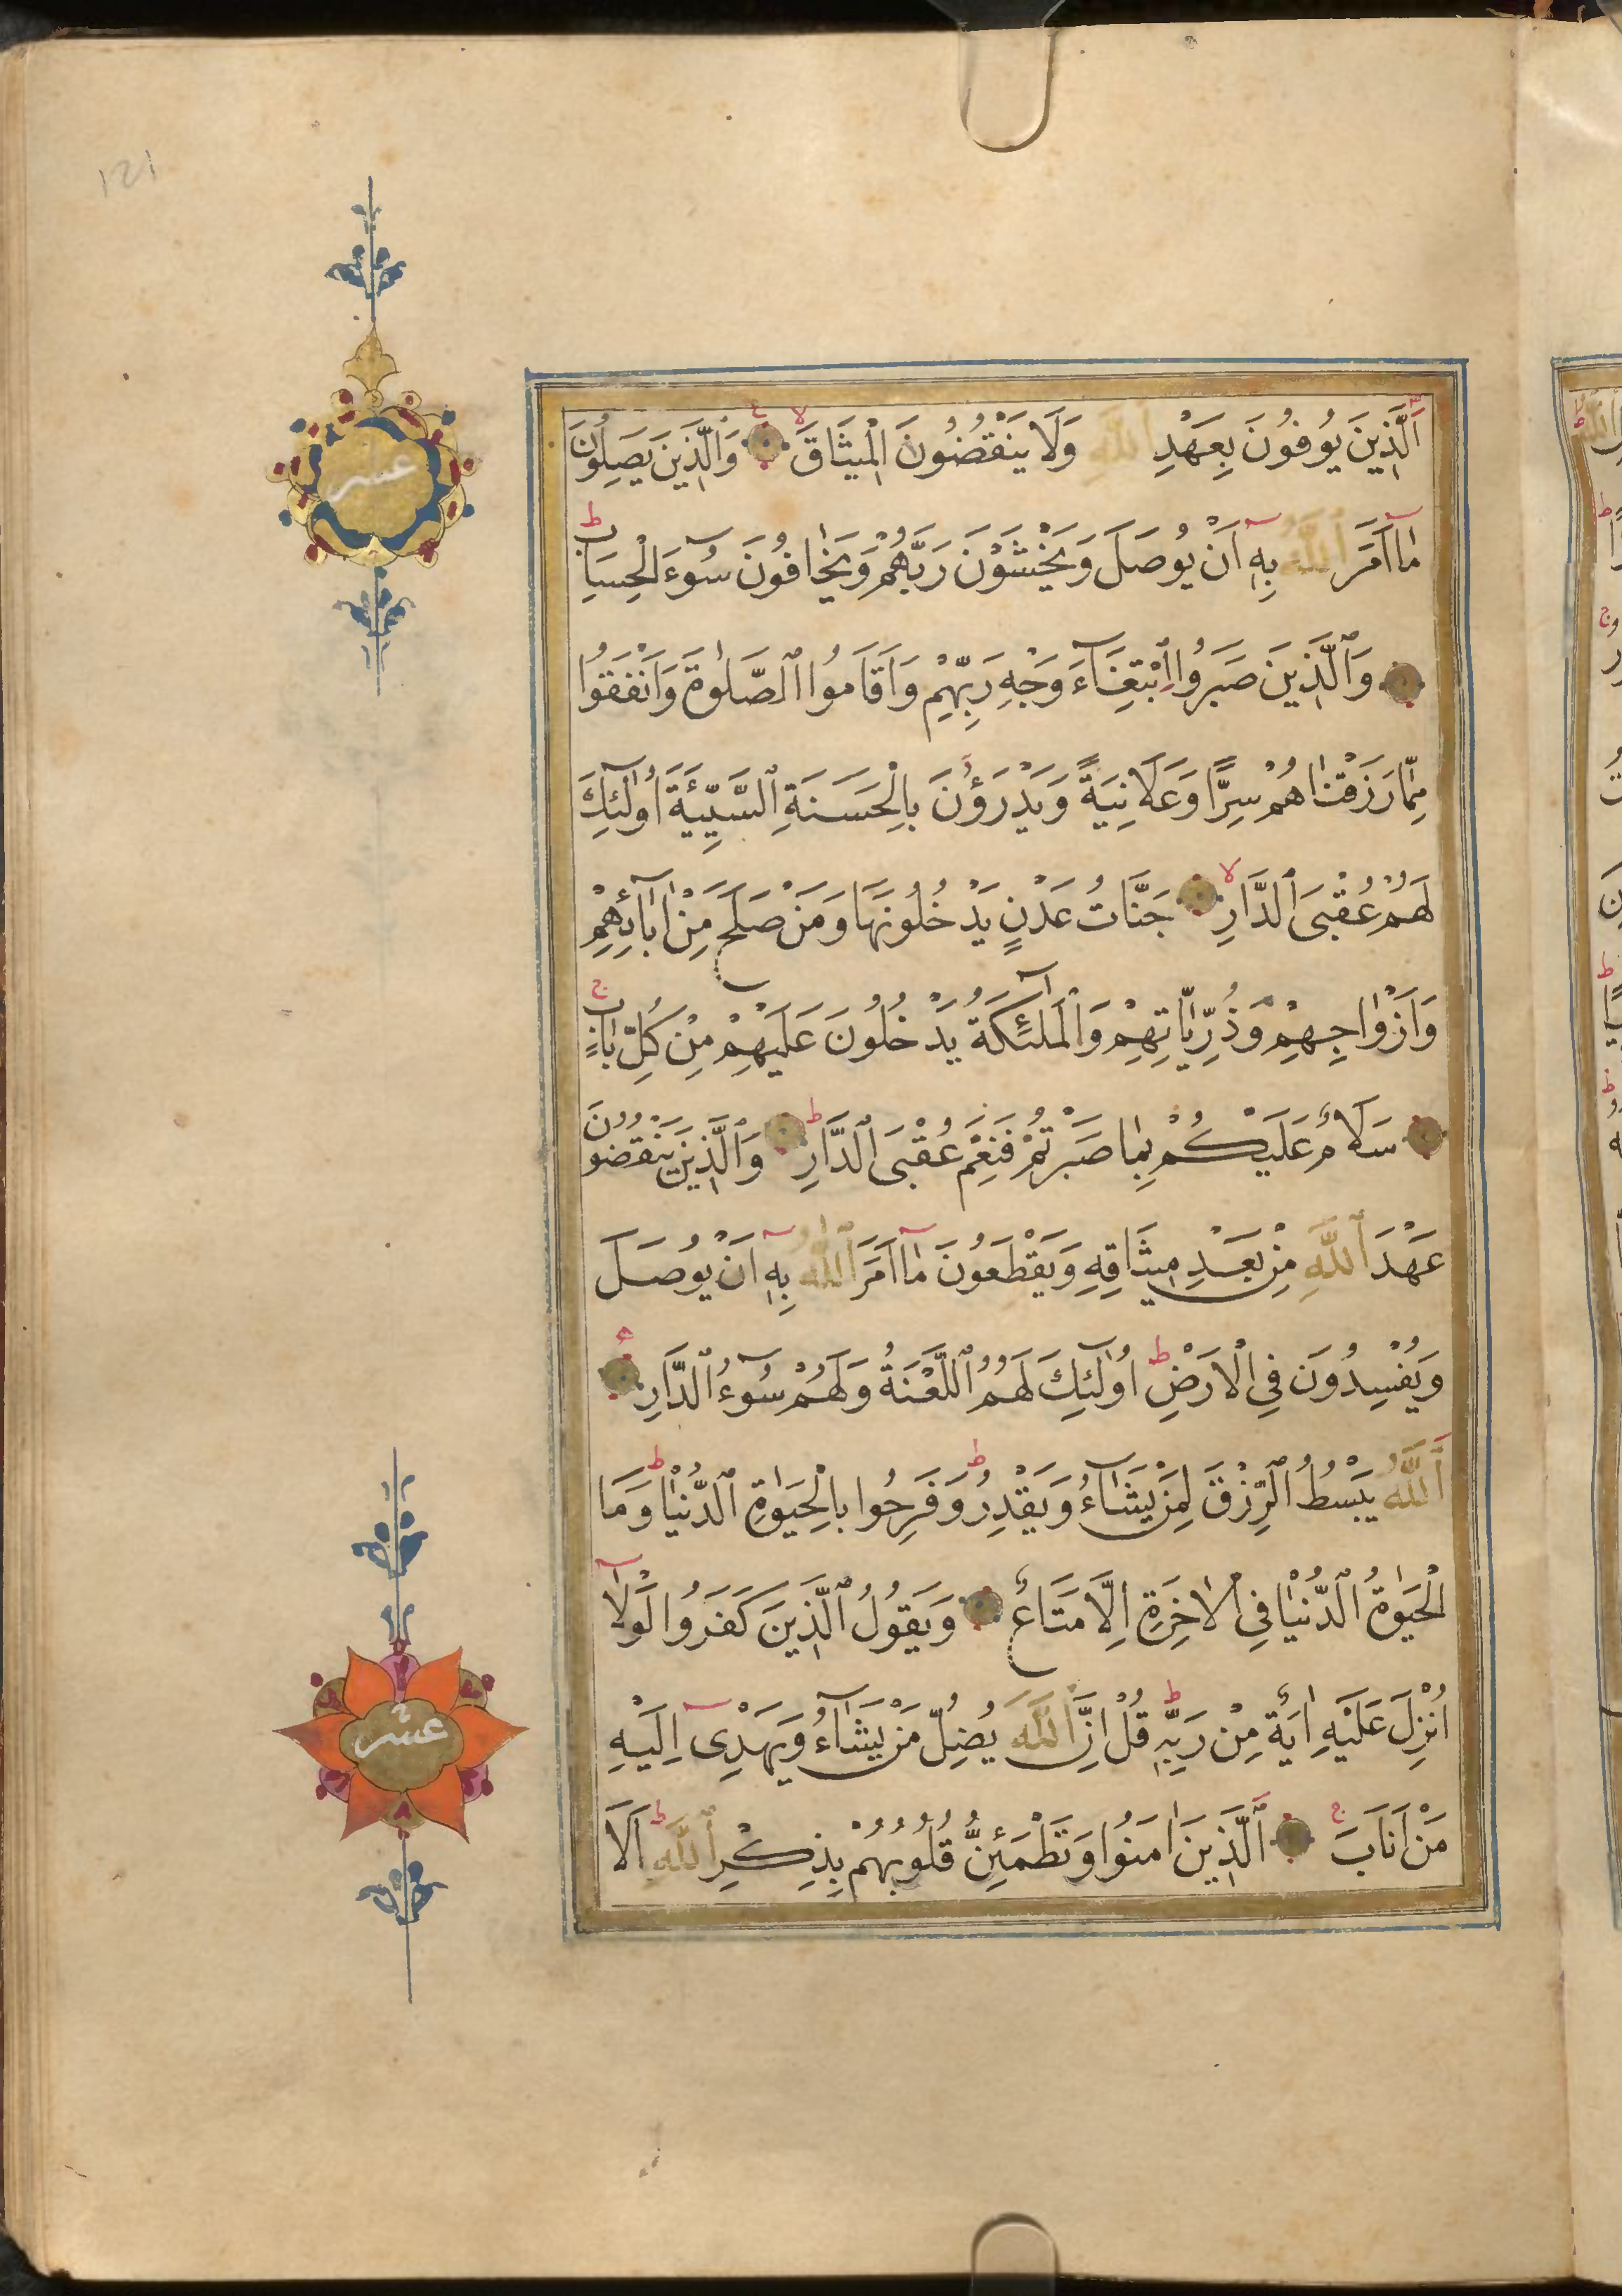 ١٢١
اَلَّذِينَ يُوفُونَ بِعَهْدِ اللَّهِ وَلَا يَنْقُضُونَ الْمِيثَاقَ وَالَّذِينَ يَصِلُونَ
مَا اَمَرَ اللَّهُ بِهِ اَنْ يُوصَلَ وَيَخْشَوْنَ رَبَّهُمْ وَيَخَافُونَ سُوءَ الْحِسَابِ
وَالَّذِينَ صَبَرُوا ابْتِغَاءَ وَجْهِ رَبِّهِمْ وَاَقَامُوا الصَّلٰوةَ وَاَنْفَقُوا
مِمَّا رَزَقْنَاهُمْ سِرًّا وَعَلَانِيَةً وَيَدْرَؤُنَ بِالْحَسَنَةِ السَّيِّئَةَ اُولٰئِكَ
لَهُمْ عُقْبَى الدَّارِ جَنَّاتُ عَدْنٍ يَدْخُلُونَهَا وَمَنْ صَلَحَ مِنْ اٰبَائِهِمْ
وَاَزْوَاجِهِمْ وَذُرِّيَّاتِهِمْ وَالْمَلٰئِكَةُ يَدْخُلُونَ عَلَيْهِمْ مِنْ كُلِّ بَابٍ
سَلَامٌ عَلَيْكُمْ بِمَا صَبَرْتُمْ فَنِعْمَ عُقْبَى الدَّارِ وَالَّذِينَ يَنْقُضُونَ
عَهْدَ اللَّهِ مِنْ بَعْدِ مِيثَاقِهِ وَيَقْطَعُونَ مَا اَمَرَ اللَّهُ بِهِ اَنْ يُوصَلَ
وَيُفْسِدُونَ فِي الْاَرْضِ اُولٰئِكَ لَهُمُ اللَّعْنَةُ وَلَهُمْ سُوءُ الدَّارِ
اَللَّهُ يَبْسُطُ الرِّزْقَ لِمَنْ يَشَاءُ وَيَقْدِرُ وَفَرِحُوا بِالْحَيٰوةِ الدُّنْيَا وَمَا
الْحَيٰوةُ الدُّنْيَا فِي الْاٰخِرَةِ اِلَّا مَتَاعٌ وَيَقُولُ الَّذِينَ كَفَرُوا لَوْلَا
اُنْزِلَ عَلَيْهِ اٰيَةٌ مِنْ رَبِّهِ قُلْ اِنَّ اللَّهَ يُضِلُّ مَنْ يَشَاءُ وَيَهْدِى اِلَيْهِ
مَنْ اَنَابَ اَلَّذِينَ اٰمَنُوا وَتَطْمَئِنُّ قُلُوبُهُمْ بِذِكْرِ اللَّهِ اَلَا
عشر
عشر